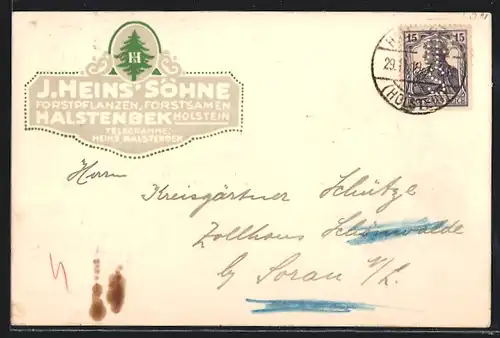 HH
J. HEINS' SÖHNE
FORSTPFLANZEN, FORSTSAMEN
HALSTENBEK HOLSTEIN
TELEGRAMME:
HEINS HALSTENBEK
15 15
29.1
(HOLSTEIN)
Herrn
Kreisgärtner Schütze
Zollhaus Schönwalde
by Sorau N/L.